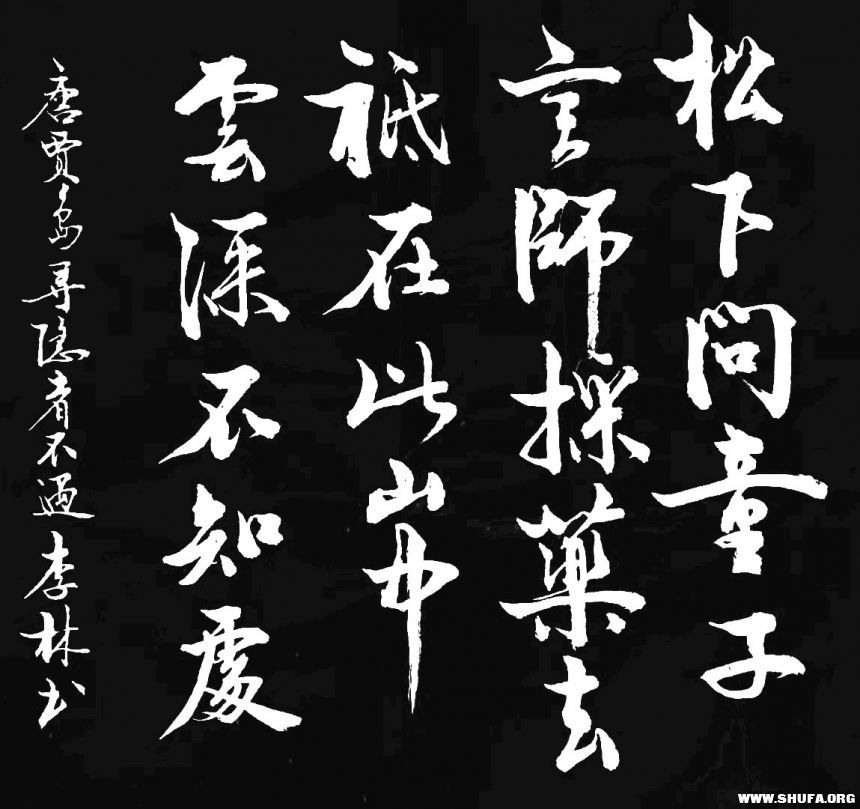 松下問童子
言師採藥去
祗在此山中
雲深不知處
唐賈島尋隐者不遇 李林书
WWW.SHUFA.ORG